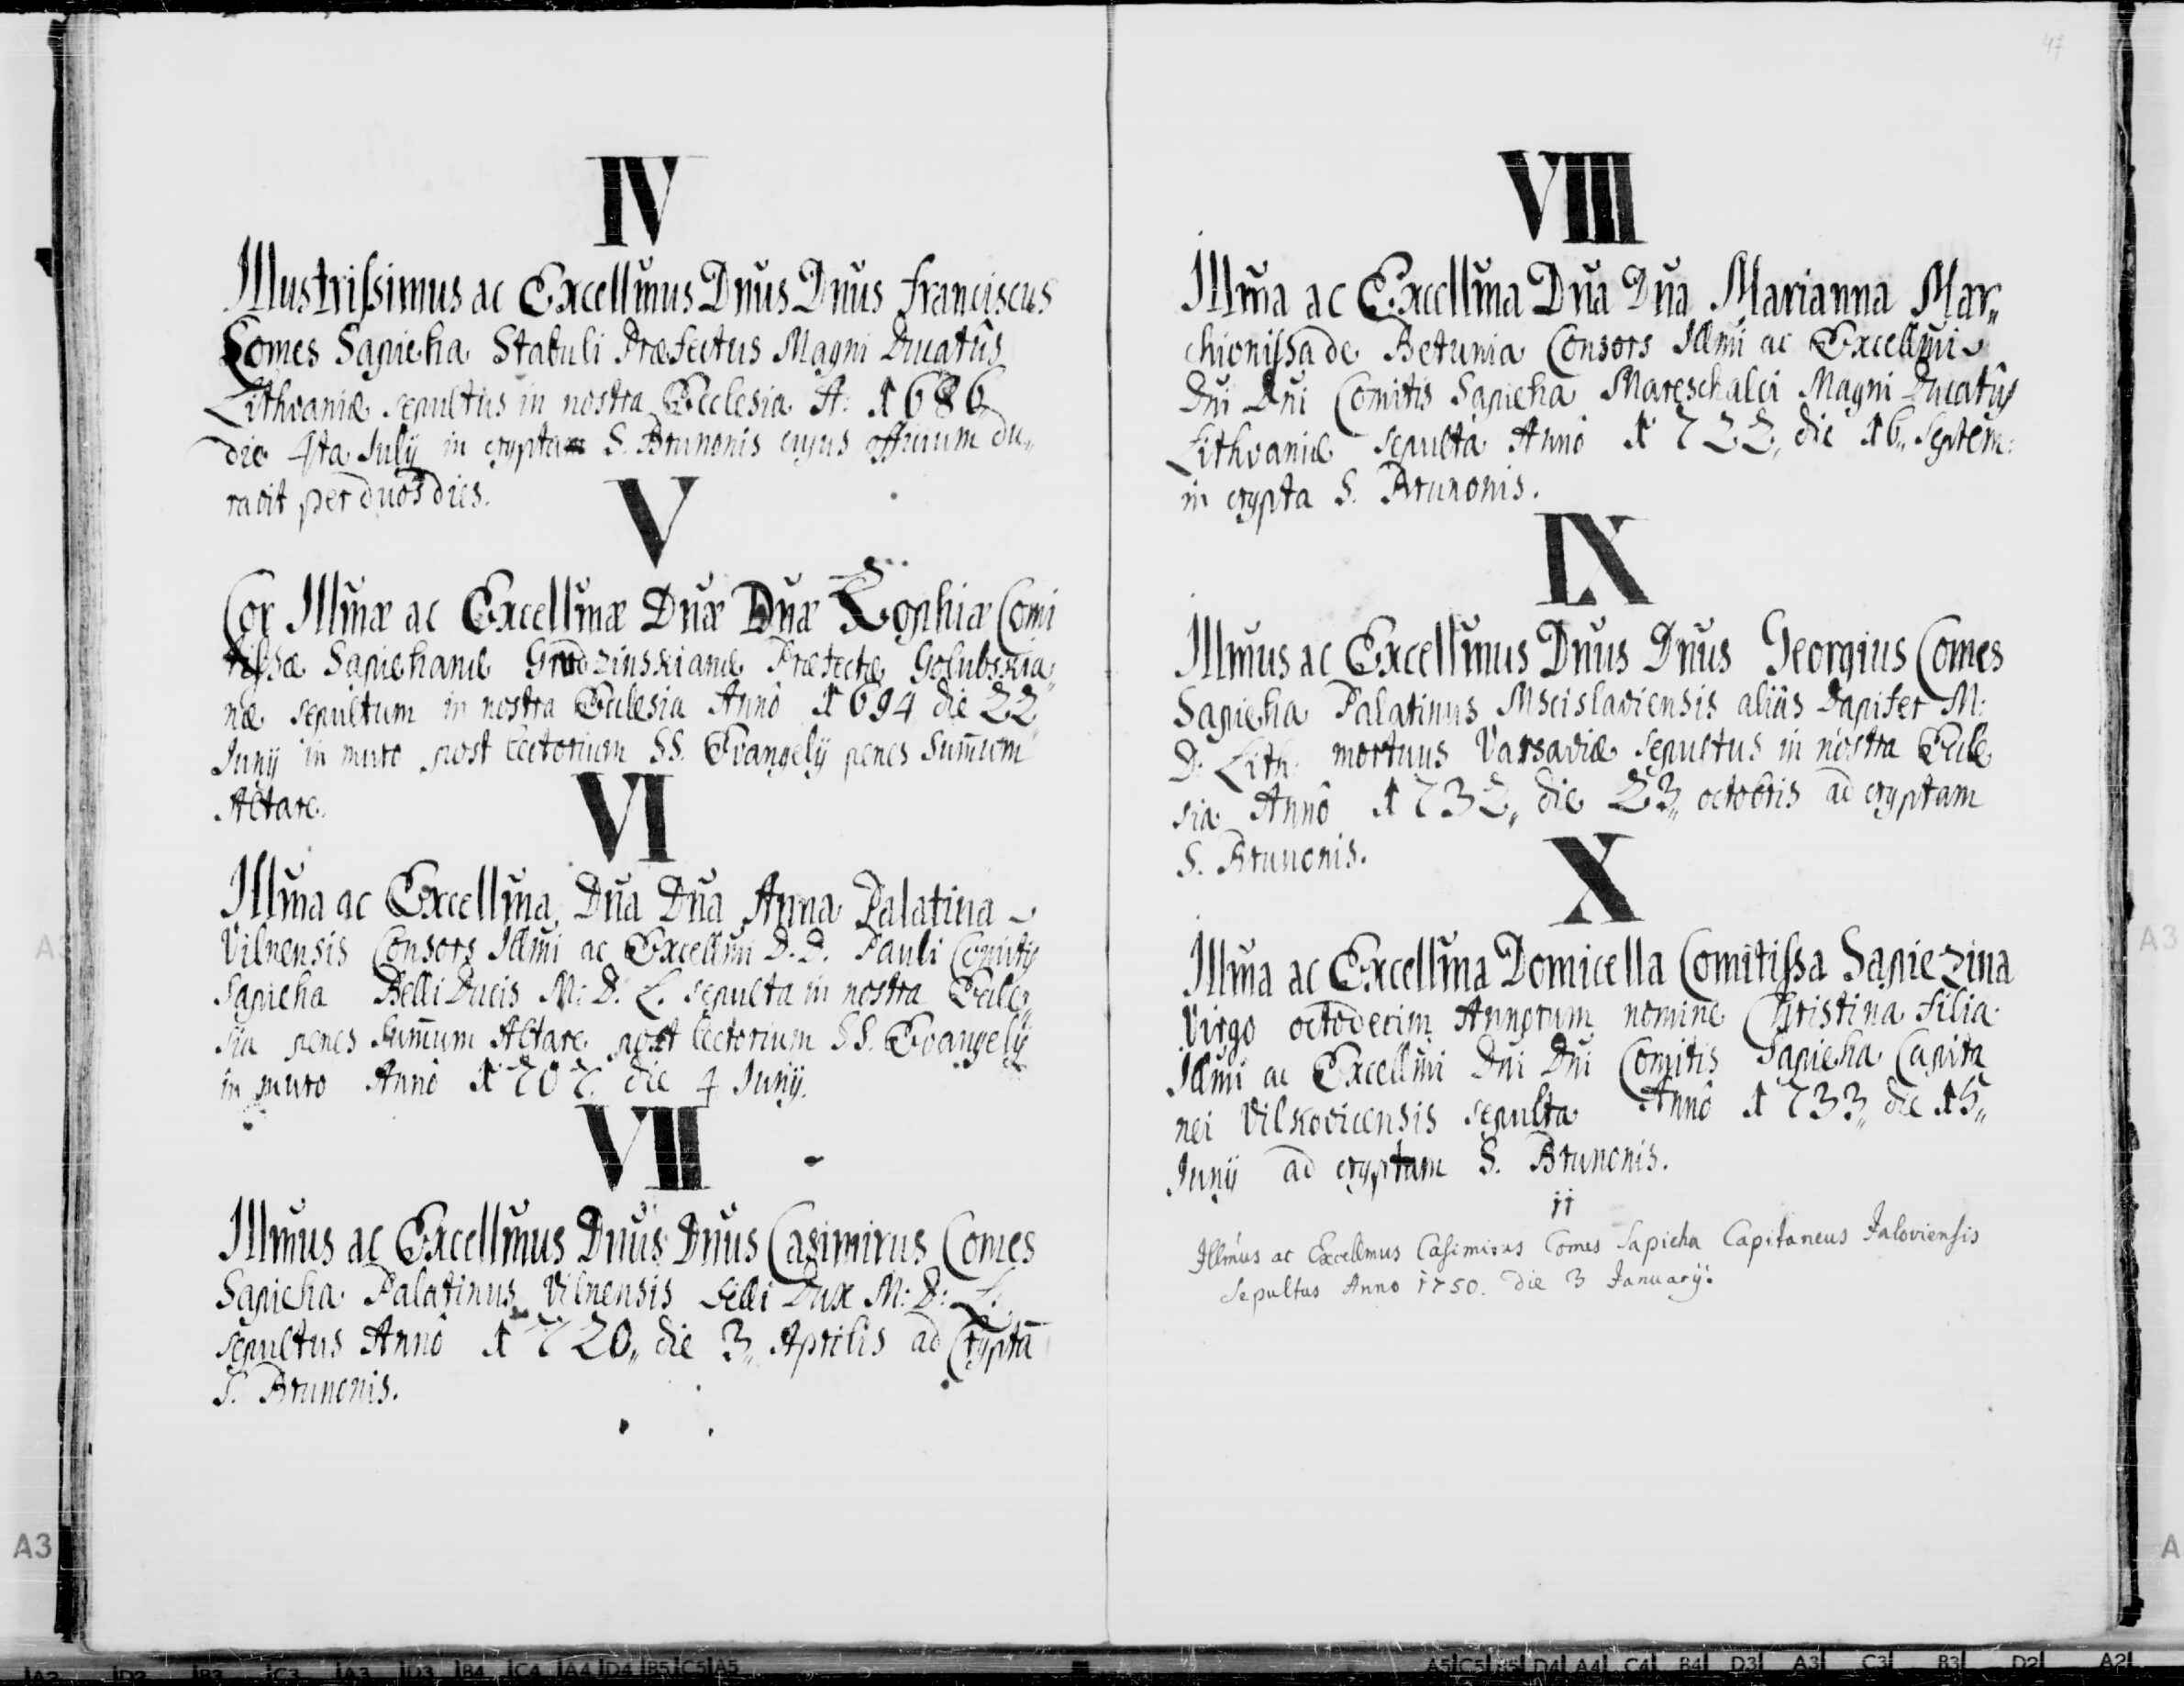 IV
Illustrissimus ac Excellm̃us Dnũs Dnũs Franciscus
Comes Sapieha Stabuli Præfectus Magni Ducatûs
Lithvaniæ sepultus in nostra Ecclesia A: 1686
die 4ta July in cryptam S. Brunonis cujus officium du„
ravit per duos dies.
V
Cor Illm̃æ ac Excellm̃æ Dnæ̃ Dnæ̃ Zophiæ Comi
tissæ Sapiehanæ Grudzinskianæ Præfectæ Golubskia„
næ sepultum in nostra Ecclesia Annô 1694 die 22
Junij in muro post lectorium SS. Evangelij penes Sum̃um
Altare.
VI
Illm̃a ac Excellm̃a Dnã Dnã Anna Palatina
Vilnensis Consors Illm̃i ac Excellm̃i D. D. Pauli Comitis
Sapieha Belli Ducis M: D: L. sepulta in nostra Eccle„
sia penes Sum̃um Altare post lectorium SS. Evangelij
in muro Annô 1707. die 4 Junij.
VII
Illm̃us ac Excellm̃us Dnũs Dnũs Casimirus Comes
Sapieha Palatinus Vilnensis Belli Dux M: D: L.
sepultus Annô 1720„ die 3„ Aprilis ad Cryptã
S. Brunonis.
47
VIII
Illm̃a ac Excellm̃a Dnã Dnã Marianna Mar„
chionissa de Betunia Consors Illm̃i ac Excellm̃i
Dni Dni Comitis Sapieha Mareschalci Magni Ducatûs
Lithvaniæ sepulta Annô 1722, die 16„ Septem:
in crypta S. Brunonis.
IX
Illm̃us ac Excellm̃us Dnũs Dnũs Georgius Comes
Sapieha Palatinus Mscislaviensis aliâs Dapifer M:
D. Lith: mortuus Varsaviæ sepultus in nostra Eccle
sia Annô 1732„ die 23„ octobris ad cryptam
S. Brunonis.
X
Illm̃a ac Excellm̃a Domicella Comitissa Sapiezina
Virgo octodecim Annorum nomine Christina filia
Illm̃i ac Excellm̃i Dni Dni Comitis Sapieha Capita
nei Vilkovicensis sepulta Annô 1733„ die 15„
Junij ad cryptam S. Brunonis.
11
Illm̃us ac Excellmus Casimirus Comes Sapieha Capitaneus Jaloviensis
Sepultus Anno 1750. die 3 Januarij.
A3
A3
A3
A
A2 D2 B3 C3 A3 D3 B4 C4 A4 D4 B5 C5 A5
A5 C5 B5 D4 A4 C4 B4 D3 A3 C3 B3 D2 A2